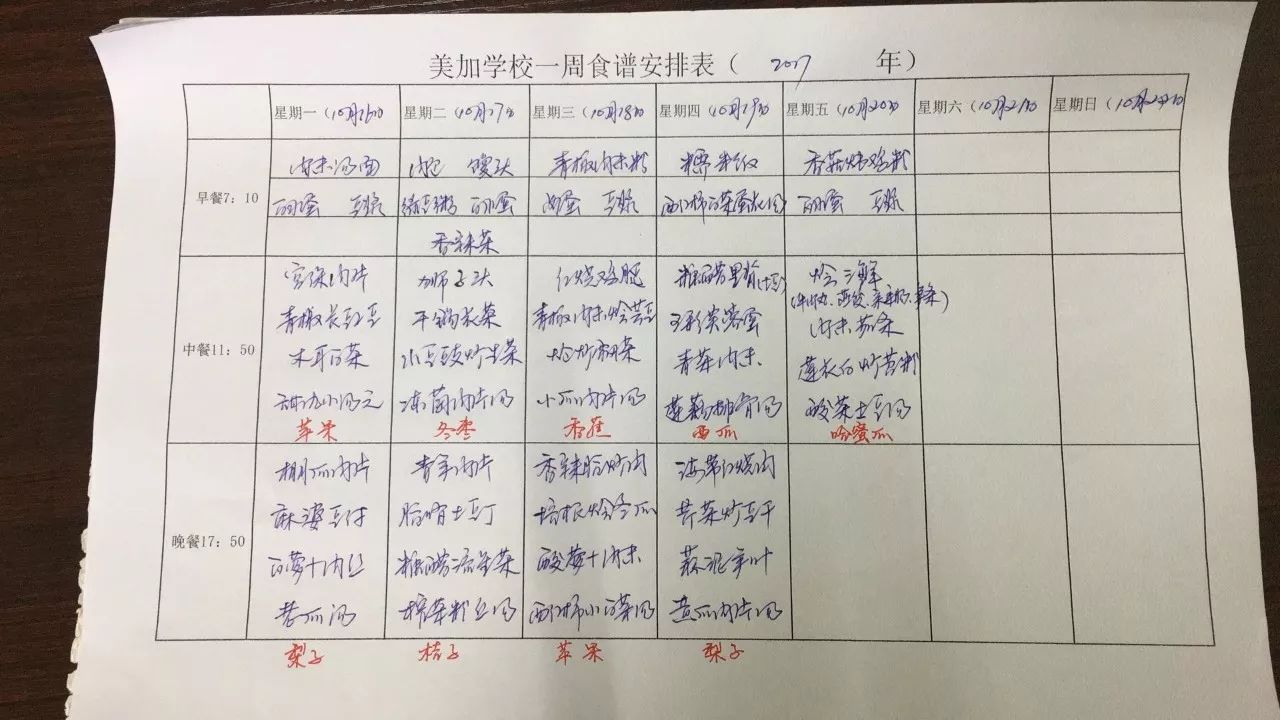 美加学校一周食谱安排表（ 2017 年）
星期一（10月16日） 星期二（10月17日） 星期三（10月18日） 星期四（10月19日） 星期五（10月20日） 星期六（10月21日） 星期日（10月22日）
早餐7：10
肉末汤面 肉包 馒头 青椒肉末粉 香菇炖鸡粉
卤蛋 豆浆 绿豆粥 卤蛋 卤蛋 豆浆 西红柿白菜蛋花汤 卤蛋 豆浆
香辣菜
中餐11：50
宫保肉片 狮子头 红烧鸡腿 糖醋里脊(土豆) 烩三鲜
青椒长豇豆 干锅花菜 青椒肉末烩芸豆 五彩芙蓉蛋 肉末茄条
木耳白菜 小豆豉炒生菜 炝炒 青菜肉末 莲花白炒苕粉
甜 小汤元 冻菌肉片汤 小瓜肉片汤 莲藕排骨汤 酸菜土豆汤
苹果 冬枣 香蕉 西瓜 哈蜜瓜
晚餐17：50
肉片 青笋肉片 香辣脆炒肉 海带红烧肉
麻婆豆付 脆哨土豆丁 培根烩冬瓜 芹菜炒豆干
白萝卜肉丝 糖醋 菜 酸萝卜肉末 蒜泥笋叶
苦瓜汤 榨菜粉丝汤 西红柿小白菜汤 黄瓜肉片汤
梨子 桔子 苹果 梨子